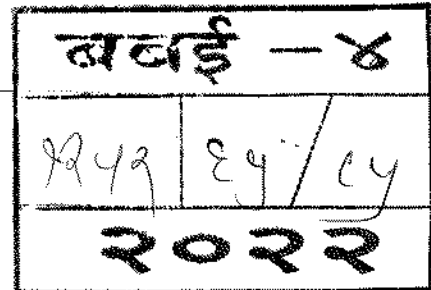 बबई - ४
१२५२ ६५ / ८५
२०२२